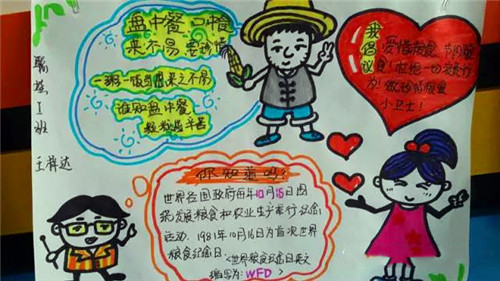 盘中餐 口中食
来不易 要珍惜
一粥一饭当思来之不易
谁知盘中餐
粒粒皆辛苦
我倡议
爱惜粮食 节约粮
食！杜绝一切浪费行
为！做珍惜粮食
小卫士！
I班
王梓达
你知道吗？
世界各国政府每年10月16日围
绕发展粮食和农业生产举行纪念
活动，1981年10月16日为首次世界
粮食纪念日<世界粮食纪念日英文
缩写为：WFD>